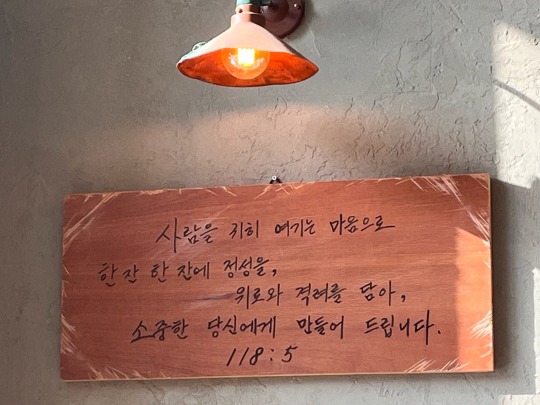 사람을 귀히 여기는 마음으로
한잔 한잔에 정성을,
위로와 격려를 담아,
소중한 당신에게 만들어 드립니다.
118:5